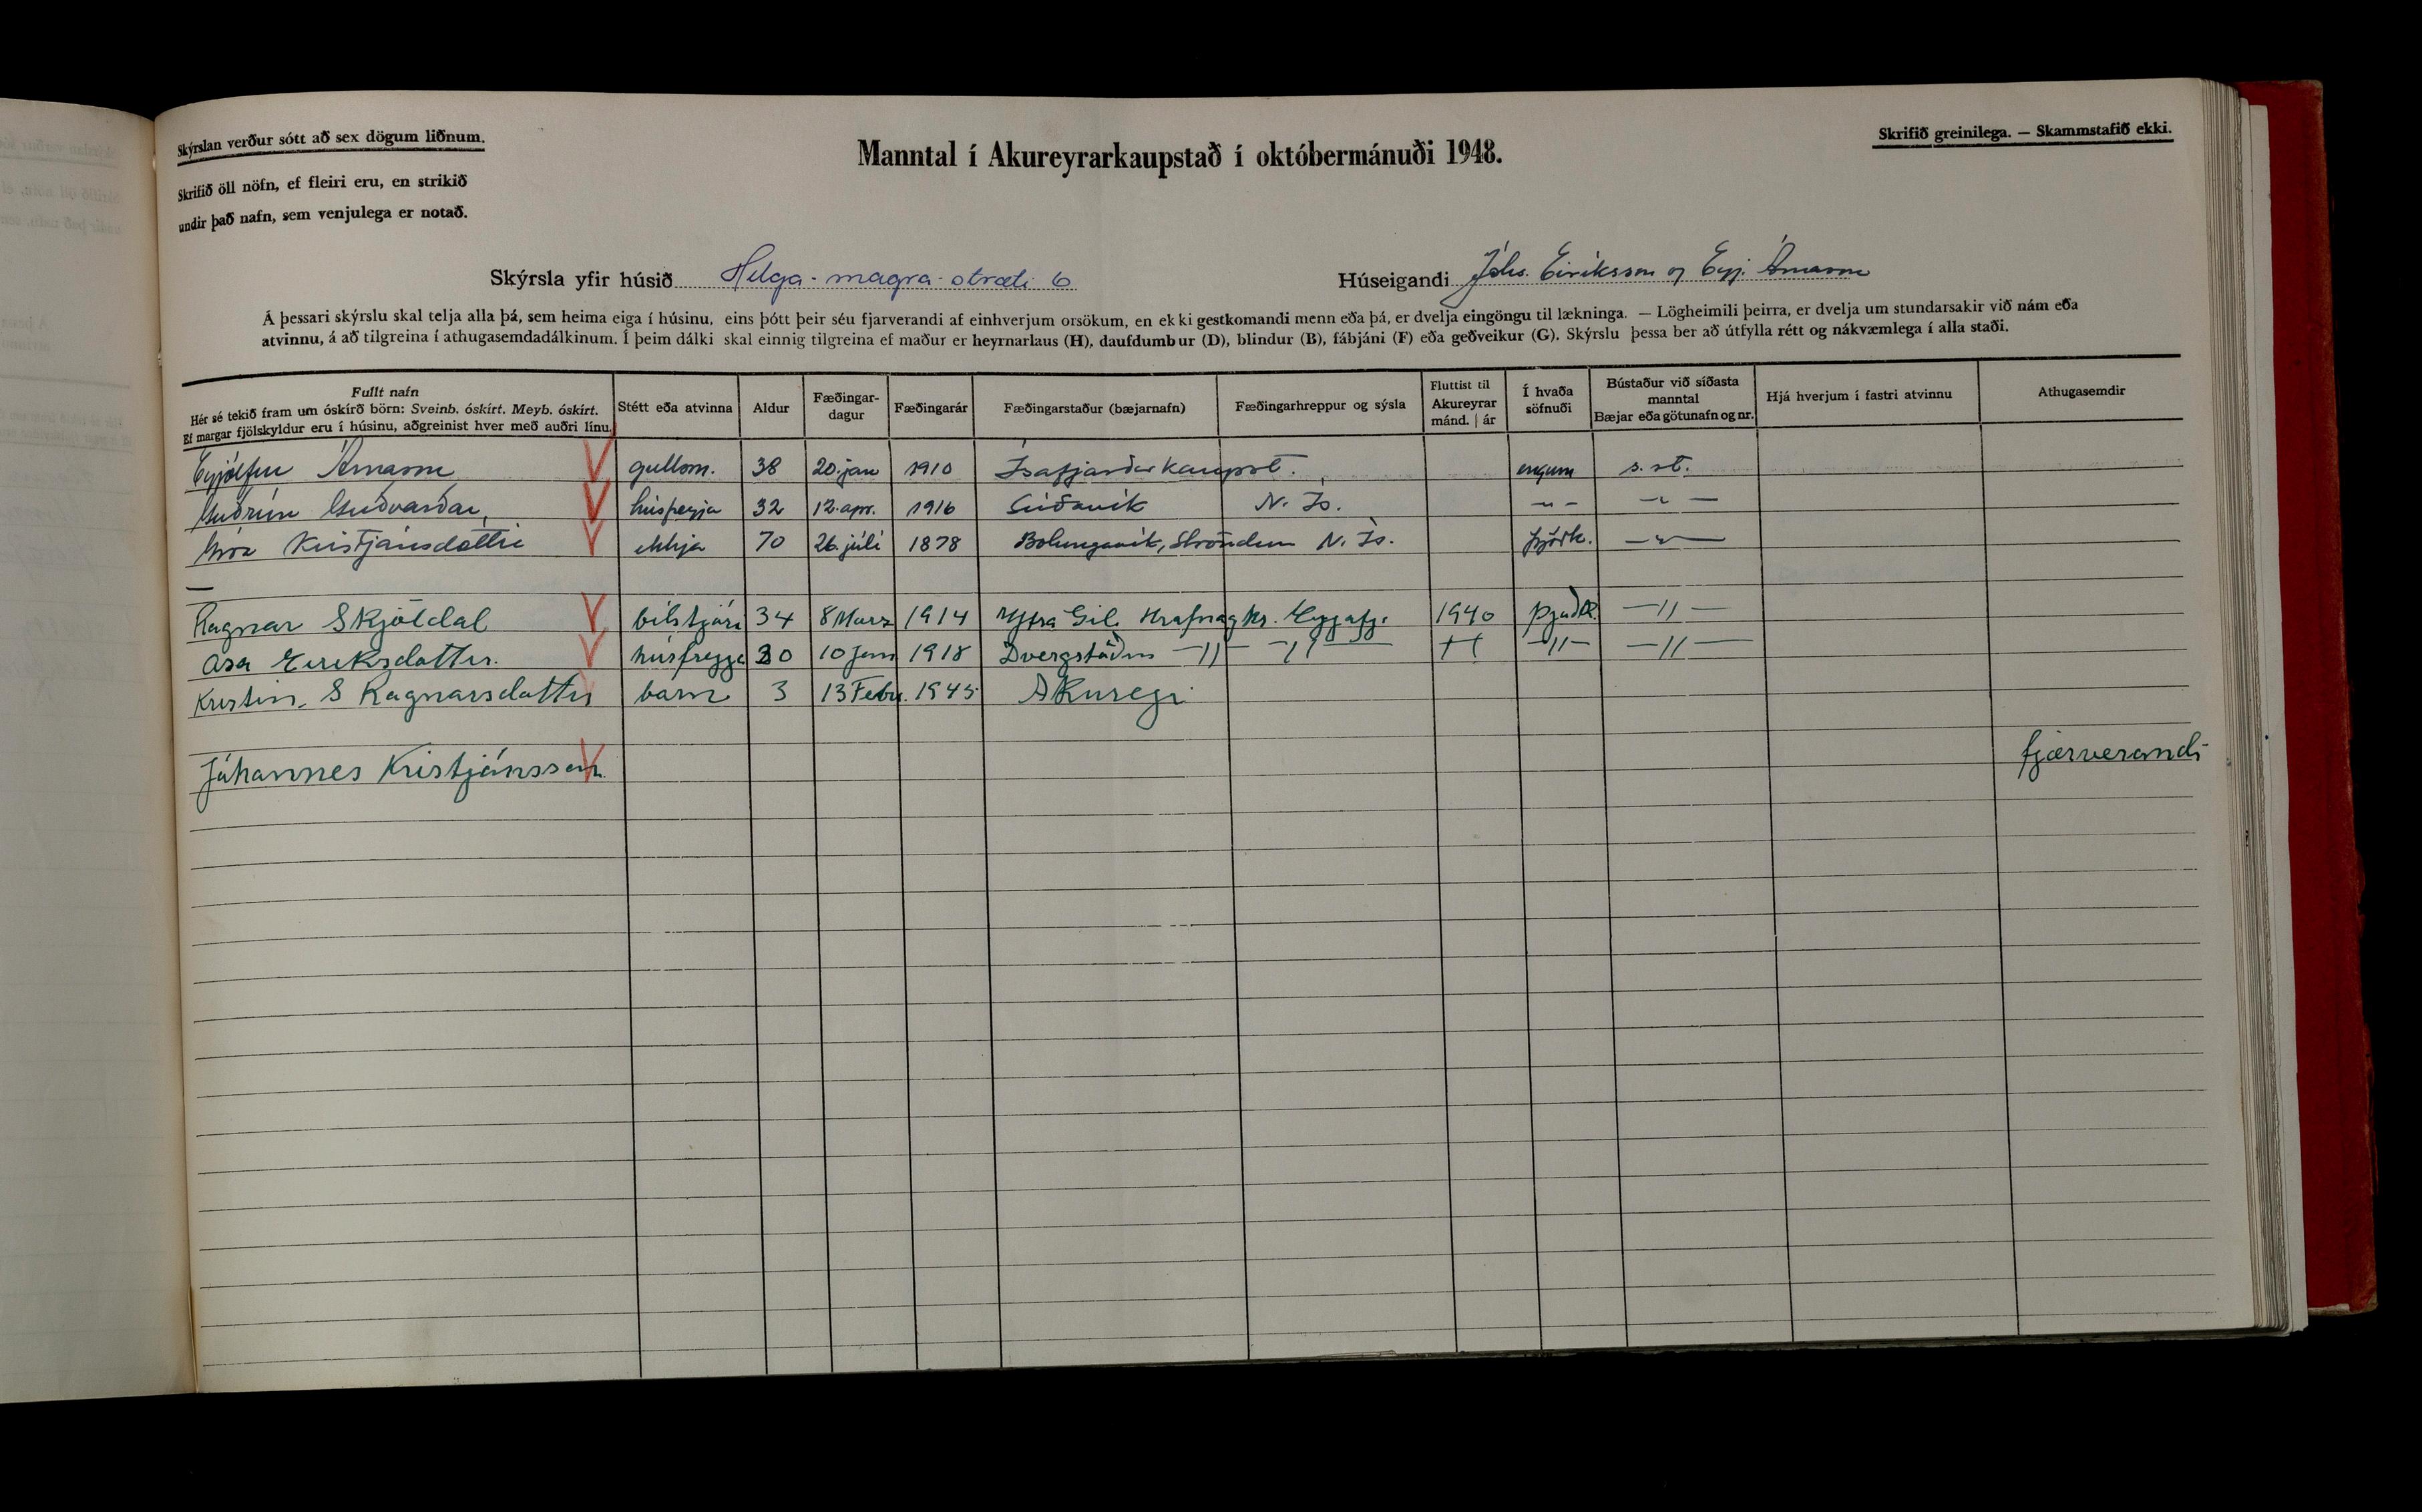 Skýrslan verður sótt að sex dögum liðnum.
Skrifið öll nöfn, ef fleiri eru, en strikið
undir það nafn, sem venjulega er notað.
Manntal í Akureyrarkaupstað í októbermánuði 1948.
Skrifið greinilega. — Skammstafið ekki.
Skýrsla yfir húsið Helga-magra-stræti 6 Húseigandi Jóhs. Eiríksson og Eyj. Árnason
Á þessari skýrslu skal telja alla þá, sem heima eiga í húsinu, eins þótt þeir séu fjarverandi af einhverjum orsökum, en ekki gestkomandi menn eða þá, er dvelja eingöngu til lækninga. — Lögheimili þeirra, er dvelja um stundarsakir við nám eða
atvinnu, á að tilgreina í athugasemdadálkinum. Í þeim dálki skal einnig tilgreina ef maður er heyrnarlaus (H), daufdumbur (D), blindur (B), fábjáni (F) eða geðveikur (G). Skýrslu þessa ber að útfylla rétt og nákvæmlega í alla staði.
Fullt nafn
Hér sé tekið fram um óskírð börn: Sveinb. óskírt. Meyb. óskírt.
Ef margar fjölskyldur eru í húsinu, aðgreinist hver með auðri línu.
Stétt eða atvinna
Aldur
Fæðingar-
dagur
Fæðingarár
Fæðingarstaður (bæjarnafn)
Fæðingarhreppur og sýsla
Fluttist til
Akureyrar
mánd. | ár
Í hvaða
söfnuði
Bústaður við síðasta
manntal
Bæjar eða götunafn og nr.
Hjá hverjum í fastri atvinnu
Athugasemdir
Eyjólfur Árnason V gullsm. 38 20. jan 1910 Ísafjarðarkaupst. engum s. st.
Guðrún Guðvarðar V húsfreyja 32 12. apr. 1916 Súðavík N. Ís. -"- -"-
Gróa Kristjánsdóttir V ekkja 70 26. júlí 1878 Bolungavík, Ströndum N. Ís. þjóðk. -"-
Ragnar Skjóldal V bílstjóri 34 8 Mars 1914 Ytra Gil. Hrafnaghr. Eyjafj. 1940 þjóðk. -"-
Asa Eiriksdottir. V húsfreyja 30 10 Jan 1918 Dvergstöðum -"- -"- -"- -"- -"-
Kristin. S Ragnarsdottir V barn 3 13 Febr. 1945 Akureyri
Jóhannes Kristjánsson V fjærverandi